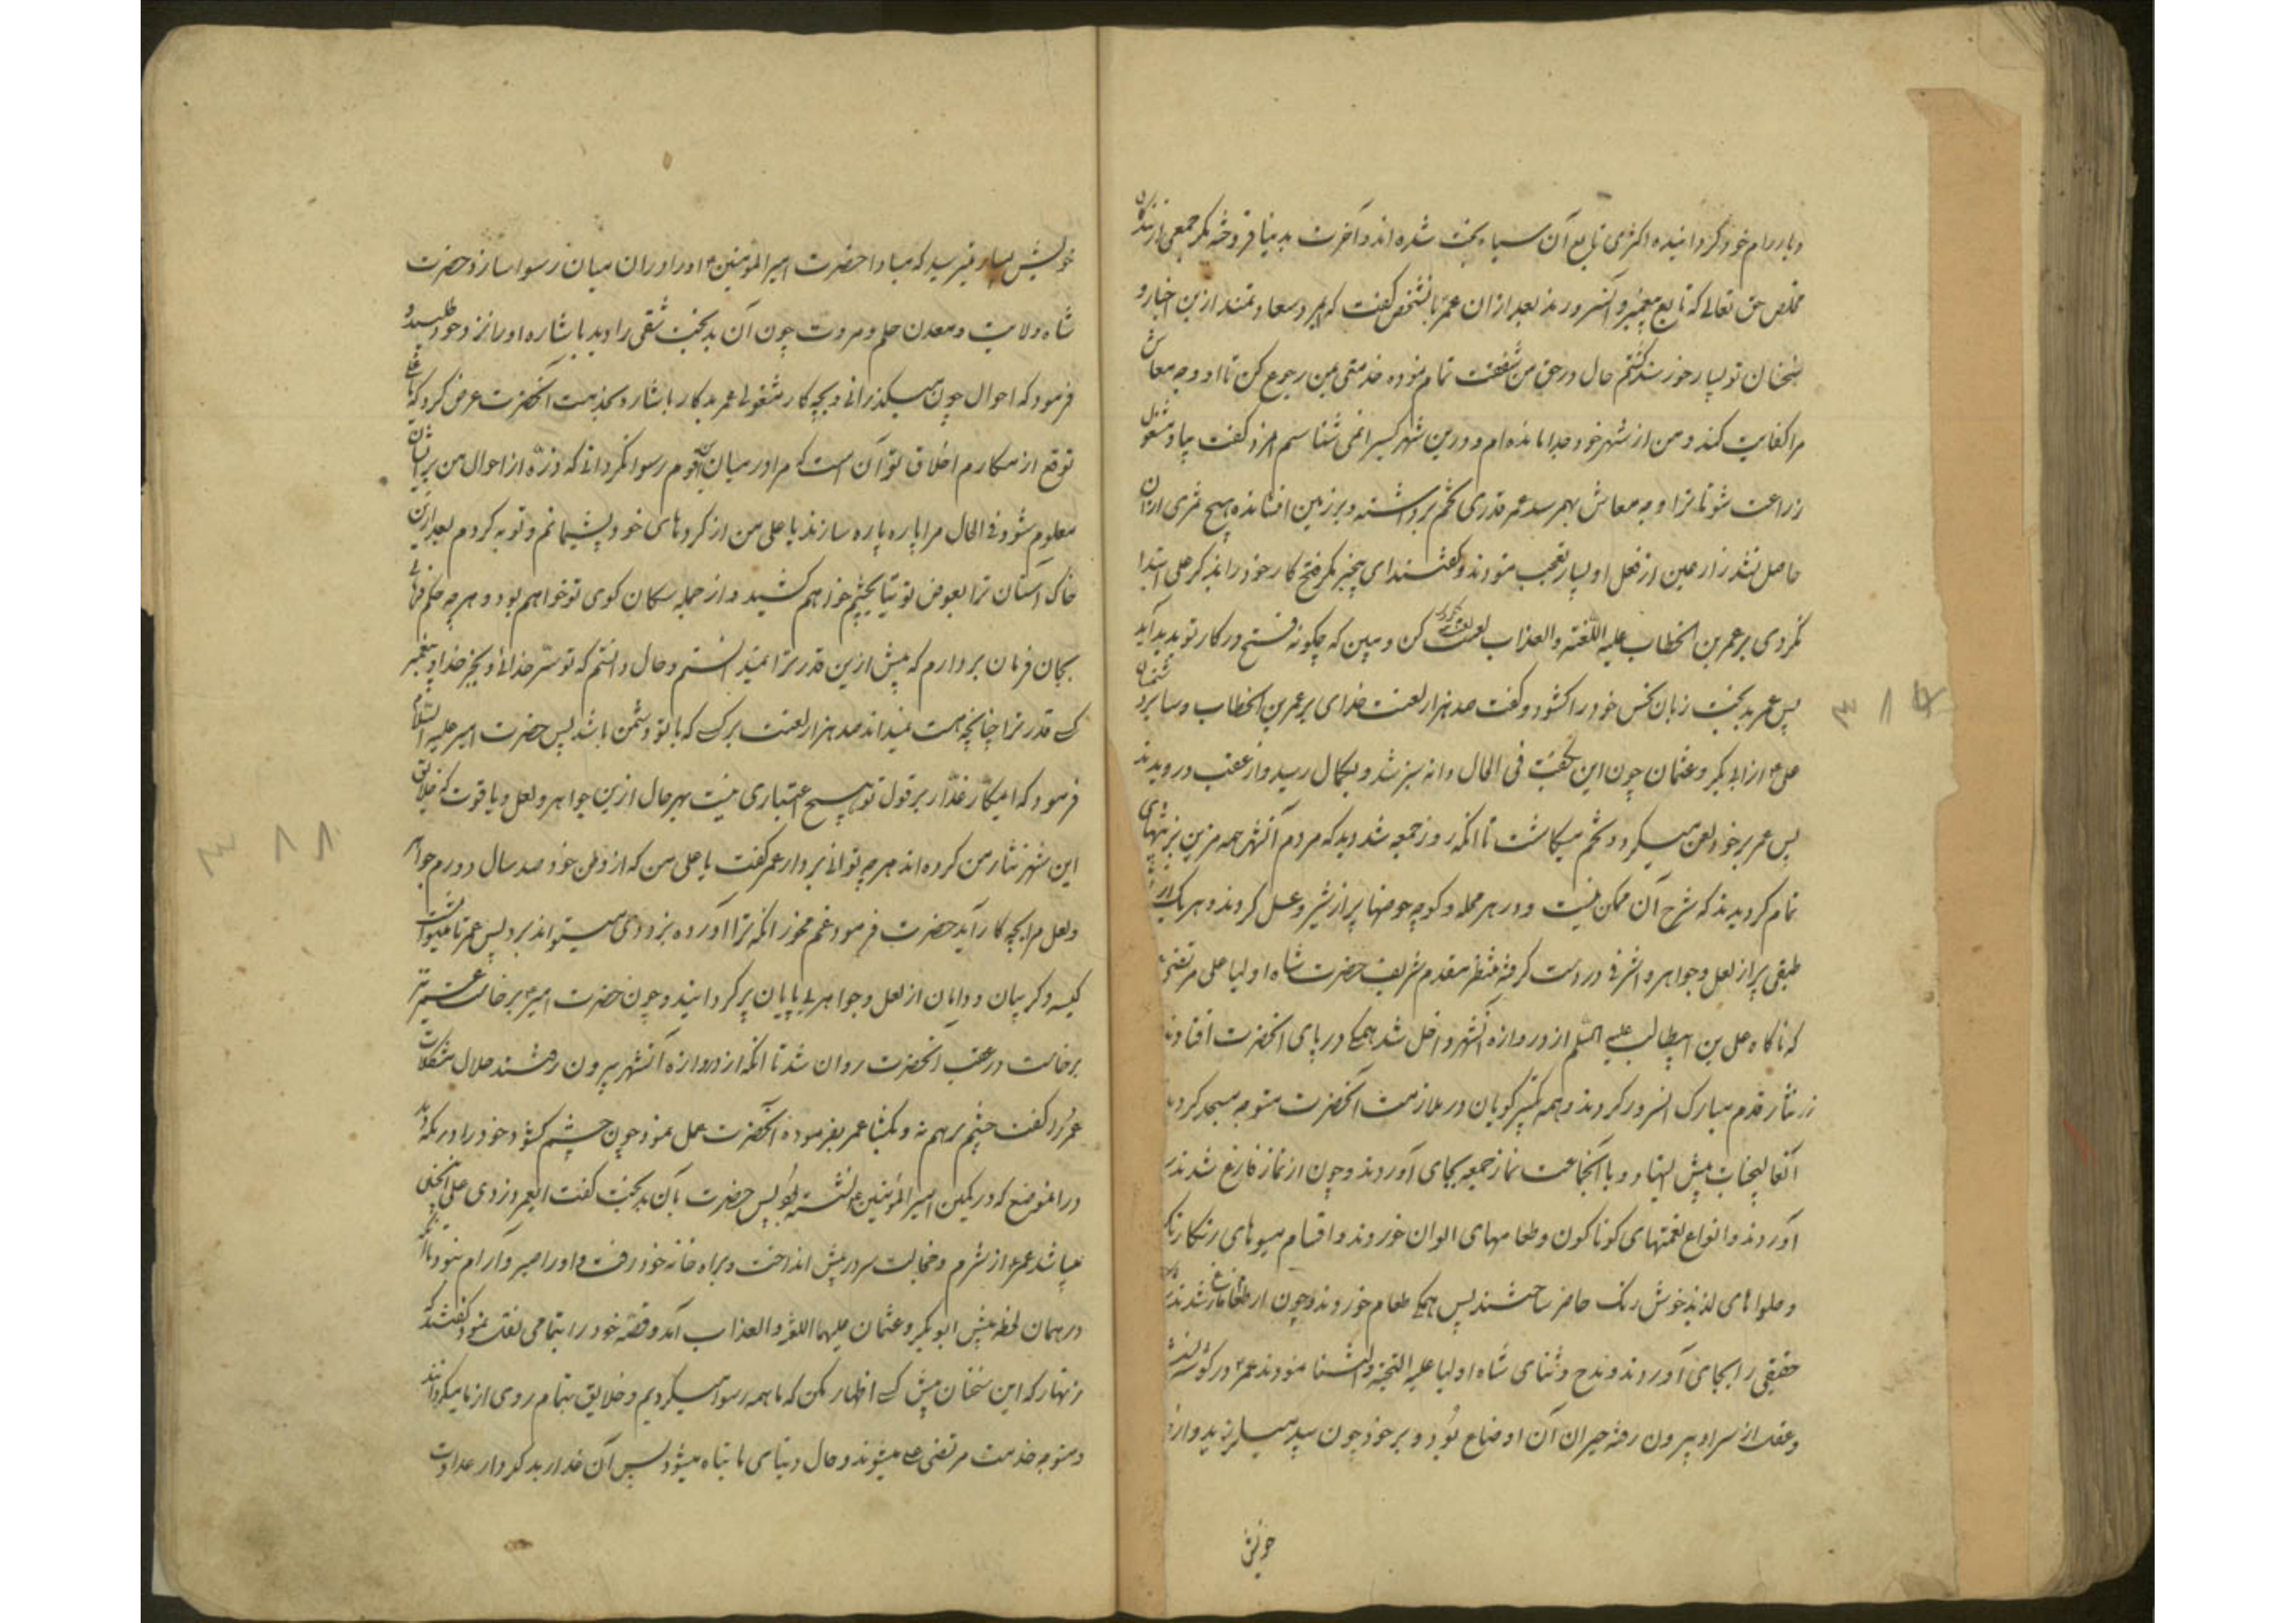 و یار رام خود گردانیده اکثری تابع آن سیاه بخت شده اند و آخرت بدنیا فروخته مکر جمعی از بندکان
مخلص حق تعالی که تابع پیغمبر و آنسرورند بعد از ان عمر بانشخص کفت که ای مرد سعادتمند ازین اخبار و
سخنان تو بسیار خورسند کشتم حال در حق من شفقت تمام نموده خدمتی بمن رجوع کن تا او وجه معاش
مرا کفایت کند و من از شهر خود جدا مانده ام و درین شهر کسیرا نمی شناسم مرد کفت بیا و مشغول
زراعت شو تا ترا وجه معاش بهمرسد عمر قدری تخم برداشته و بر زمین افشانده هیچ ثمری ازان
حاصل نشد زارعین از فعل او بسیار تعجب نمودند و کفتند ای بیخبر مکر فتح کار خود را بذکر علی ابتدا
نکردی بر عمر بن الخطاب علیه اللعنة والعذاب لعنت کن و ببین که چکونه فتح در کار تو پدید آید
پس عمر بدبخت زبان نحس خود را کشود و کفت صد هزار لعنت خدای بر عمر بن الخطاب و سایر دشمنان
علی از ابی بکر و عثمان چون این بکفت فی الحال دانه سبز شد و بکمال رسید و از عقب درویدند
پس عمر بر خود لعن میکرد و تخم میکاشت تا انکه روز جمعه شد دید که مردم آنشهر همه مزین بزینتهای
تمام کردیدند که شرح آن ممکن نیست و در هر محله و کوچه حوضها پر از شیر و عسل کردند و هر یک
طبقی پر از لعل و جواهر و اشرفی در دست کرفته منتظر مقدم شریف حضرت شاه اولیا علی مرتضی
که ناکاه علی بن ابیطالب علیه السلم از دروازه آنشهر داخل شد همکی در پای آنحضرت افتادند
زر نثار قدم مبارک آنسرور کردند و همه تکبیر کویان در ملازمت آنحضرت متوجه مسجد کردید
آنعالیجناب پیش ایستاد و با آنجماعت نماز جمعه بجای آوردند و چون از نماز فارغ شدند
آوردند و انواع نعمتهای کوناکون و طعامهای الوان خوردند و اقسام میوهای رنکارنک
و حلواهای لذیذ خوش رنک حاضر ساختند پس همکی طعام خوردند و چون از طعام فارغ شدند
حقیقی را بجای آوردند و مدح و ثنای شاه اولیا علیه التحیة والثنا نمودند عمر در کوشه نشسته
و عقل از سر او بیرون رفته حیران آن اوضاع بود و بر خود چون بید میلرزید و از
خویش
خویش بسیار میترسید که مبادا حضرت امیر المؤمنین او را دران میان رسوا سازد حضرت
شاه ولایت و معدن حلم و مروت چون آن بدبخت شقی را دید باشاره او را نزد خود طلبید و
فرمود که احوال چون میکذرانی و بچه کار مشغولی عمر بدکار باشاره بخدمت آنحضرت عرض کرد که یا علی
توقع از مکارم اخلاق تو آن است که مرا در میان این قوم رسوا نکردانی که ذره از احوال من بر ایشان
معلوم شود فی الحال مرا پاره پاره سازند یا علی من از کردهای خود پشیمانم و توبه کردم بعد ازین
خاک آستان ترا بعوض توتیا بچشم خواهم کشید و از جمله سکان کوی تو خواهم بود و هر چه حکم فرمائی
بجان فرمان بردارم که پیش ازین قدر ترا نمیدانستم و حال دانستم که تو سر خدائی و بجز خدا و پیغمبر
کسی قدر ترا چنانچه هست نمیداند صد هزار لعنت بر کسی که با تو دشمن باشد پس حضرت امیر علیه السلام
فرمود که ای مکار غدار بر قول تو هیچ اعتباری نیست بهر حال ازین جواهر و لعل و یاقوت که خلایق
این شهر نثار من کرده اند هر چه توانی بردار عمر کفت یا علی من که از وطن خود صد سال دورم جواهر
و لعل مرا بچه کار آید حضرت فرمود غم مخور آنکه ترا آورده بزودی میتواند برد پس عمر تا میتوانست
کیسه و کریبان و دامان از لعل و جواهر بی پایان پر کردانید و چون حضرت امیر برخاست عمر نیز
برخاست در عقب آنحضرت روان شد تا انکه از دروازه آنشهر بیرون رفتند حلال مشکلات
عمر را کفت چشم بر هم نه و بکشا عمر بفرموده آنحضرت عمل نمود چون چشم کشود خود را در مکه دید
در انموضع که در کمین امیر المؤمنین نشسته بود پس حضرت بآن بدبخت کفت ای عمر دزدی علی اینچنین
میباشد عمر از شرم و خجالت سر در پیش انداخت و براه خانه خود رفت و او را صبر و آرام نبود تا آنکه
در همان لحظه پیش ابو بکر و عثمان علیهما اللعنة والعذاب آمد و قصه خود را بتمامی نقل نمود کفتند که
زنهار که این سخنان پیش کسی اظهار مکن که ما همه رسوا میکردیم و خلایق بتمام روی از ما میکردانند
و متوجه خدمت مرتضی علی میشوند و حال دنیای ما تباه میشود پس آن غدار بدکردار عداوت